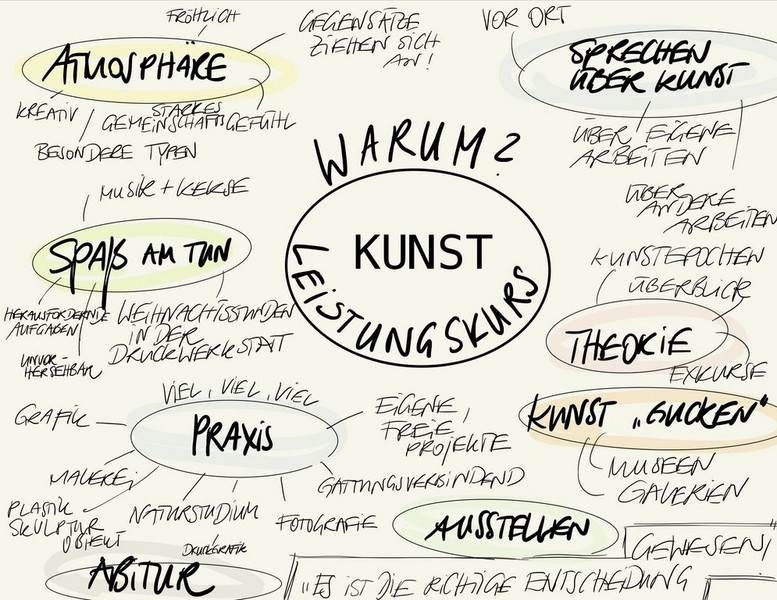 WARUM?
KUNST
LEISTUNGSKURS
FRÖHLICH
ATMOSPHÄRE
GEGENSÄTZE
ZIEHEN SICH
AN!
KREATIV
STARKES
GEMEINSCHAFTSGEFÜHL
BESONDERE TYPEN
VOR ORT
SPRECHEN
ÜBER KUNST
ÜBER EIGENE
ARBEITEN
ÜBER
ANDERE
ARBEITEN
MUSIK + KEKSE
SPAß AM TUN
HERAUSFORDERNDE
AUFGABEN
UNVOR-
HERSEHBAR
WEIHNACHTSSTUNDEN
IN DER
DRUCKWERKSTATT
KUNSTEPOCHEN
ÜBERBLICK
THEORIE
EXKURSE
VIEL, VIEL, VIEL
PRAXIS
GRAFIK
MALEREI
PLASTIK
SKULPTUR
OBJEKT
NATURSTUDIUM
DRUCKGRAFIK
FOTOGRAFIE
GATTUNGSVERBINDEND
EIGENE,
FREIE
PROJEKTE
KUNST „GUCKEN"
MUSEEN
GALERIEN
AUSSTELLEN
ABITUR
„ES IST DIE RICHTIGE ENTSCHEIDUNG
GEWESEN!"